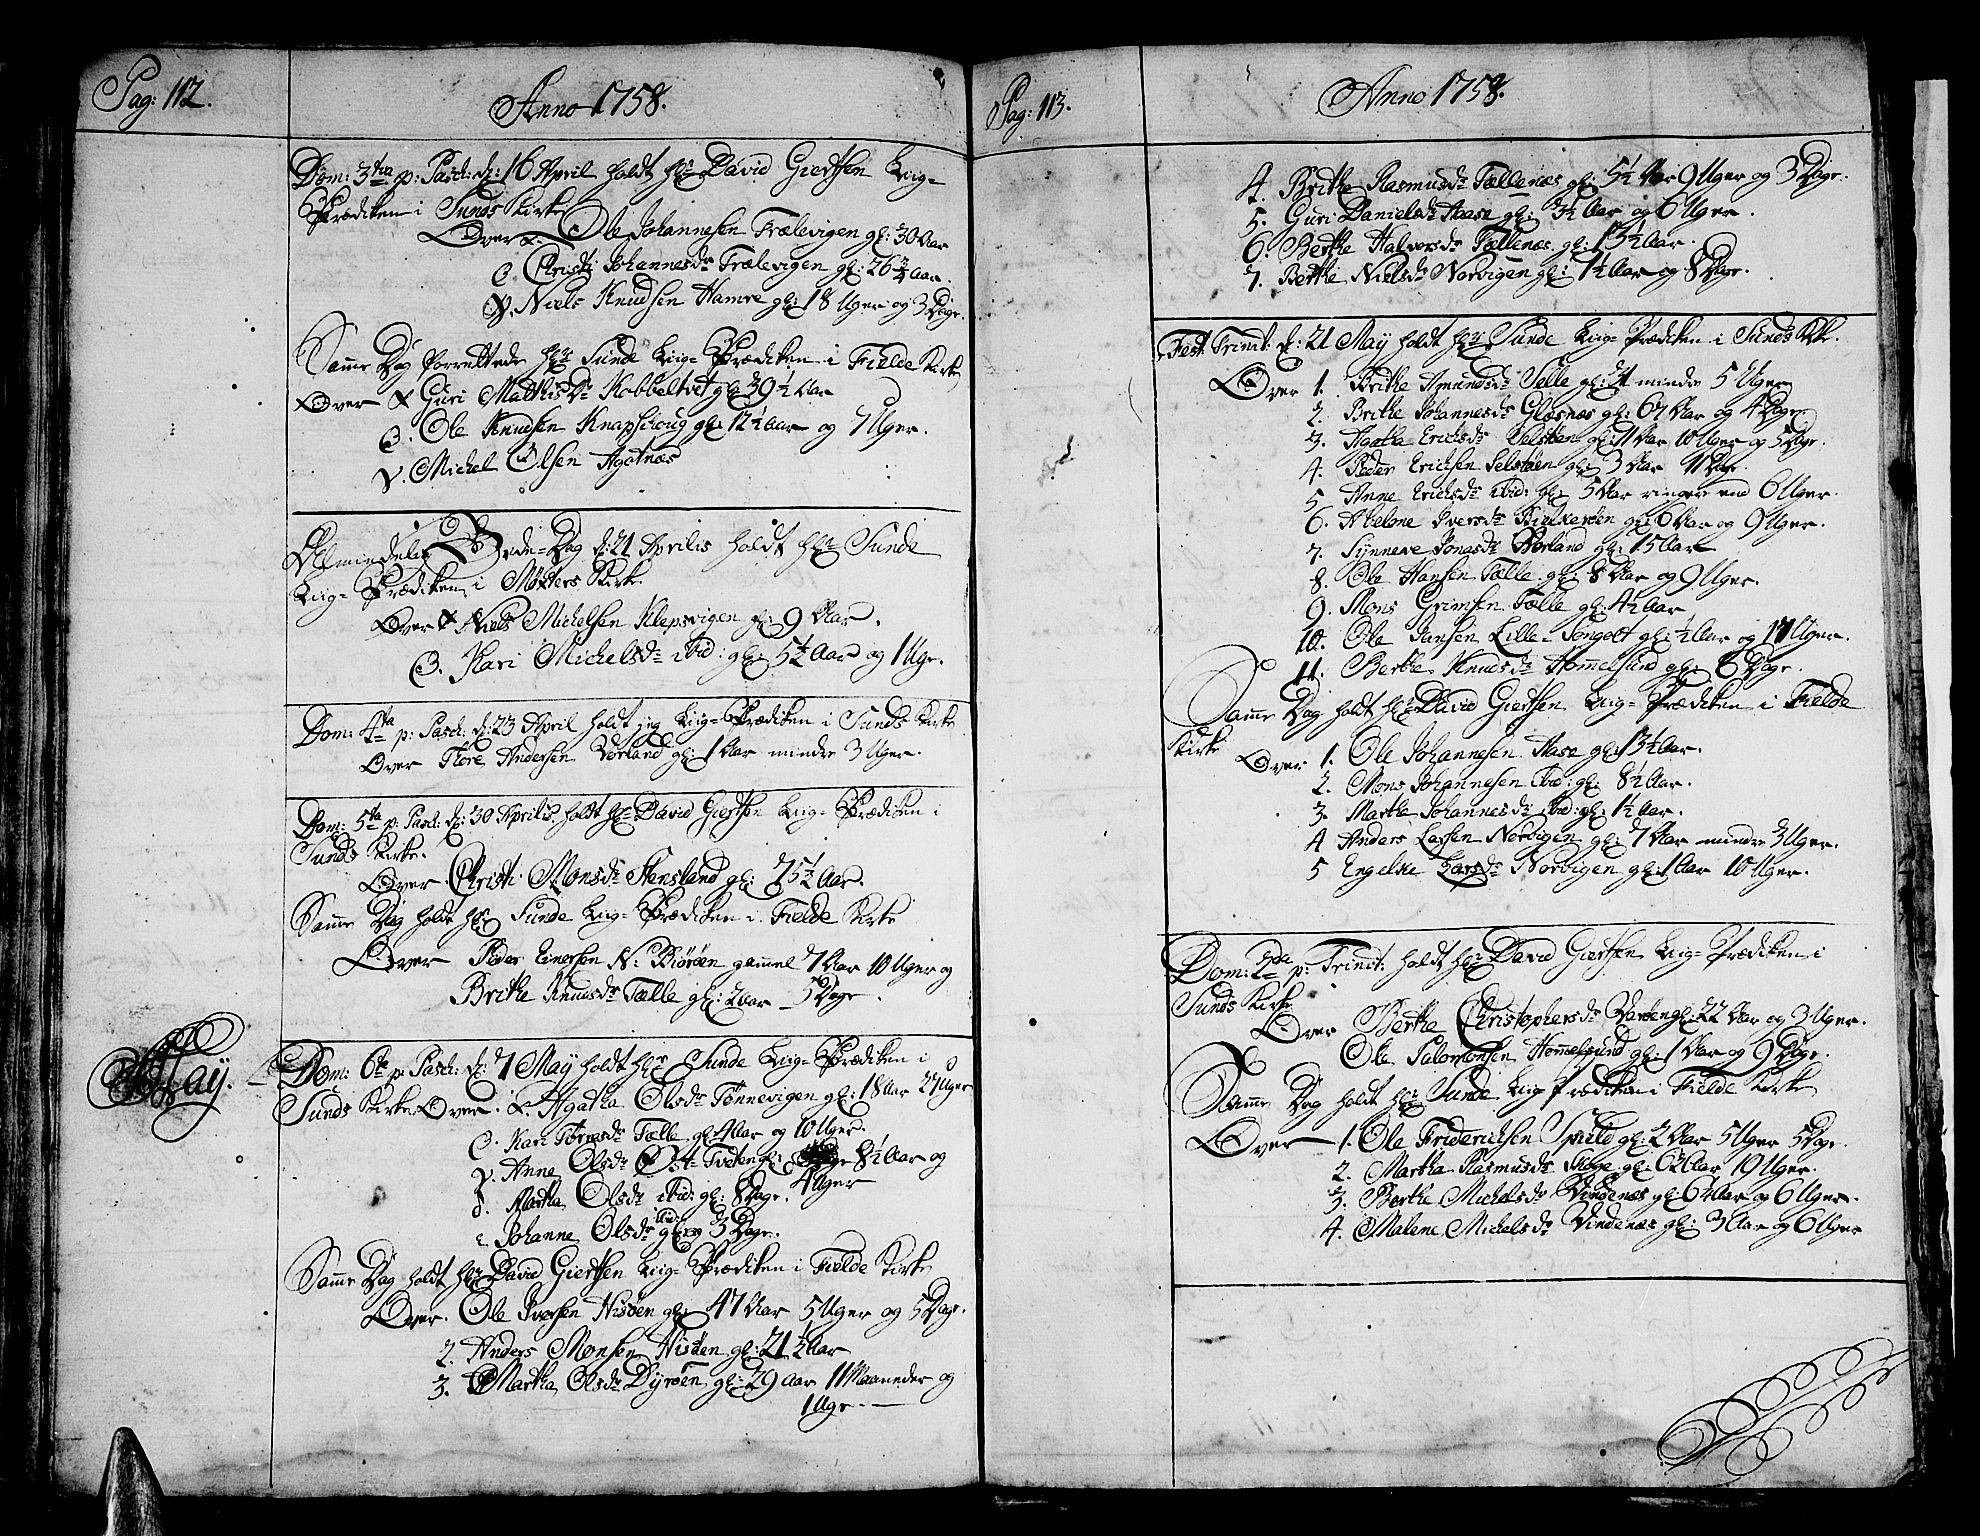 Pag: 112.
Anno 1758.
Dom: 3tia p: Pasch: d: 16 April holdt Hr David Giertsen Liig-
Prædiken i Sunds Kirke
Over α. Ole Johannesen Trælevigen gl: 30 Aar
β. Christi Johannesdr Trælevigen gl: 26 3/4 Aar
γ. Niels Knudsen Hamre gl: 18 Uger og 3 Dage.
Samme Dag forrettede Hr Sunde Liig-Prædiken i Fielde Kirke
Over α Guri Mathisdr Kobbeltvet gl: 39 1/2 Aar
β. Ole Knudsen Knapschoug gl: 12 1/2 Aar og 7 Uger.
γ. Michel Olsen Agotnæs
Almindelig Bede-Dag d: 21 Aprilis holdt Hr Sunde
Liig-Prædiken i Møchters Kirke
Over α Niels Michelsen Klepsvigen gl: 9 Aar.
β. Kari Michelsdr ibid: gl: 5 1/2 Aar og 1 Uge.
Dom: 4ta p: Pasch: d: 23 April holdt jeg Liig-Prædiken i Sunds Kirke
Over Tore Andersen Vorland gl: 1 Aar mindre 3 Uger.
Dom: 5ta p: Pasch: d: 30 Aprilis holdt Hr David Giertsen Liig-Prædiken i
Sunds Kirke.
Over Christi Monsdr Stensland gl: 75 1/2 Aar.
Samme Dag holdt Hr Sunde Liig-Prædiken i Fielde Kirke
Over Peder Einersen N: Biørøen gammel 7 Aar 10 Uger og
Brithe Knudsdr Tælle gl: 2 Aar 5 Dage.
May.
Dom: 6te p: Pasch: d: 7 May holdt Hr Sunde Liig-Prædiken i
Sunds Kirke Over. α. Agatha Olsdr Tønnevigen gl: 18 Aar 27 Uger
β. Kari Tørresdr Tælle gl: 4 Aar og 10 Uger.
γ. Anne Olsdr Øst-Tveten gl: 8 1/2 Aar og
4 Uger
δ. Martha Olsdr ibid: gl: 8 Dage.
ε Johanne Olsdr ibid: gl: 3 Dage.
Samme Dag holdt Hr David Giertsen Liig-Prædiken i Fielde Kirke
Over. Ole Iversen Hisøen gl: 47 Aar 5 Uger og 5 Dage.
2. Anders Monsen Hisøen gl: 21 1/2 Aar
3. Martha Olsdr Dyrøen gl: 29 Aar 11 Maaneder og
1 Uge.
Pag: 113.
Anno 1758.
4. Brithe Rasmusdr Tællenæs gl: 5 1/2 Aar 9 Uger og 3 Dage.
5. Guri Danielsdr Aase gl: 3 1/2 Aar og 6 Uger.
6. Berthe Halversdr Tællenæs gl: 13 1/2 Aar.
7. Berthe Nielsdr Norvigen gl: 1 1/2 Aar og 8 Dage.
Fest: Trinit: d: 21 May holdt Hr Sunde Liig-Prædiken i Sunds Kke.
Over 1. Brithe Amundsdr Selle gl: 34 mindre 5 Uger
2. Brithe Johannesdr Glæsnæs gl: 67 Aar og 4 Dage
3. Agatha Erichsdr Selstøen gl: 11 Aar 10 Uger og 5 Dage.
4. Peder Erichsen Selstøen gl: 3 Aar 11 Dage.
5 Anne Erichsdr ibid: gl: 5 Aar ringere end 6 Uger.
6. Abelone Iversdr Bielkerøen gl: 6 Aar og 9 Uger.
7. Synneve Jonasdr Vorland gl: 15 Aar
8. Ole Hansen Tælle gl: 8 Aar og 9 Uger.
9. Mons Grimsen Tælle gl: 4 1/2 Aar
10. Ole Jansen Lille-Songolt gl: 1/2 Aar og 17 Uger.
11. Berthe Knudsdr Hommelsund gl: 6 Dage.
Samme Dag holdt Hr David Giertsen Liig-Prædiken i Fielde
Kirke
Over 1. Ole Johannesen Aase gl: 13 1/2 Aar.
2. Mons Johannesen ibid: gl: 8 1/2 Aar.
3. Martha Johannesdr ibid: gl: 1 1/2 Aar.
4 Anders Larsen Norvigen gl: 7 Aar mindre 3 Uger.
5 Engelke Larsdr Norvigen gl: 1 Aar 10 Uger.
Dom: 2da p: Trinit: holdt Hr David Giertsen Liig-Prædiken i
Sunds Kirke
Over Berthe Christophersdr Vardøen gl: 22 Aar og 3 Uger.
Ole Salomonsen Hommelsund gl: 1 Aar og 9 Dage.
Samme Dag holdt Hr Sunde Liig Prædiken i Fielde Kirke
Over 1. Ole Friderichsen Spild gl: 2 Aar 5 Uger 5 Dage.
2. Martha Rasmusdr Skoge gl: 62 Aar 19 Uger.
3. Berthe Michelsdr Vindenæs gl: 6 1/2 Aar og 6 Uger.
4. Malene Michelsdr Vindenæs gl: 3 Aar og 6 Uger